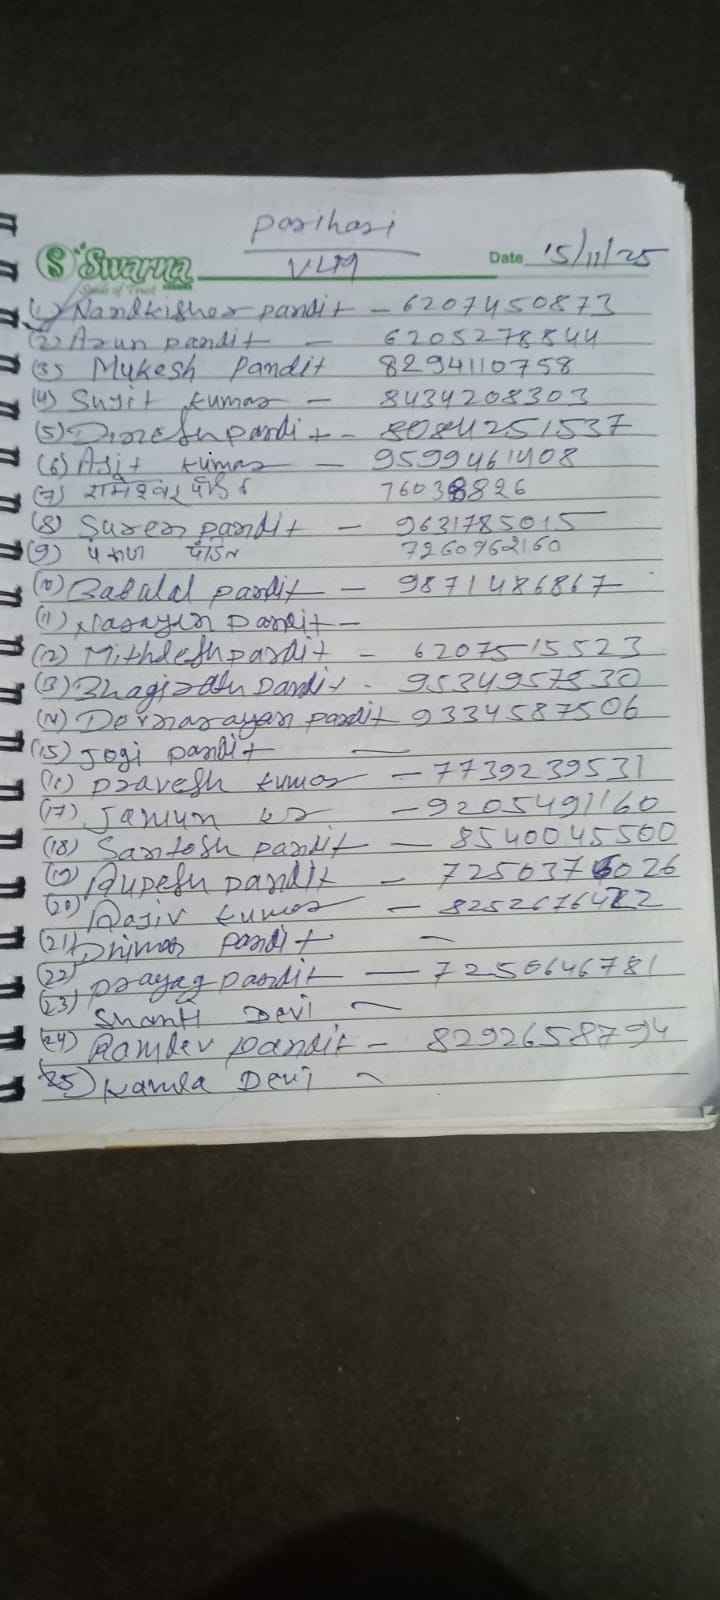 Parihari
VLM
S Swarna
Date 15/11/25
(1) Nandkishor pandit - 6207450873
(2) Arun pandit - 6205278544
(3) Mukesh Pandit 8294110758
(4) Sujit kumar - 8434208303
(5) Dinesh pandit - 8084251537
(6) Ajit kumar - 9599461408
(7) रामेश्वर पंडित 76038826
(8) Suren pandit - 9631785015
(9) पंडित 7260962160
(10) Babulal pandit - 9871486867
(11) Narayan pandit -
(12) Mithlesh pandit - 6207515523
(13) Bhagirath pandit - 9534957530
(14) Devnarayan pandit 9334587506
(15) Jogi pandit —
(16) pravesh kumar - 7739239531
(17) Jamun - 9205491160
(18) Santosh pandit — 8540045500
(19) Rupesh pandit - 7250376026
(20) Rajiv kumar -
(21) pandit -
(22) prayag pandit — 7250646781
(23) Shanti Devi -
(24) Ramdev pandit - 8292658794
(25) Kamla Devi -